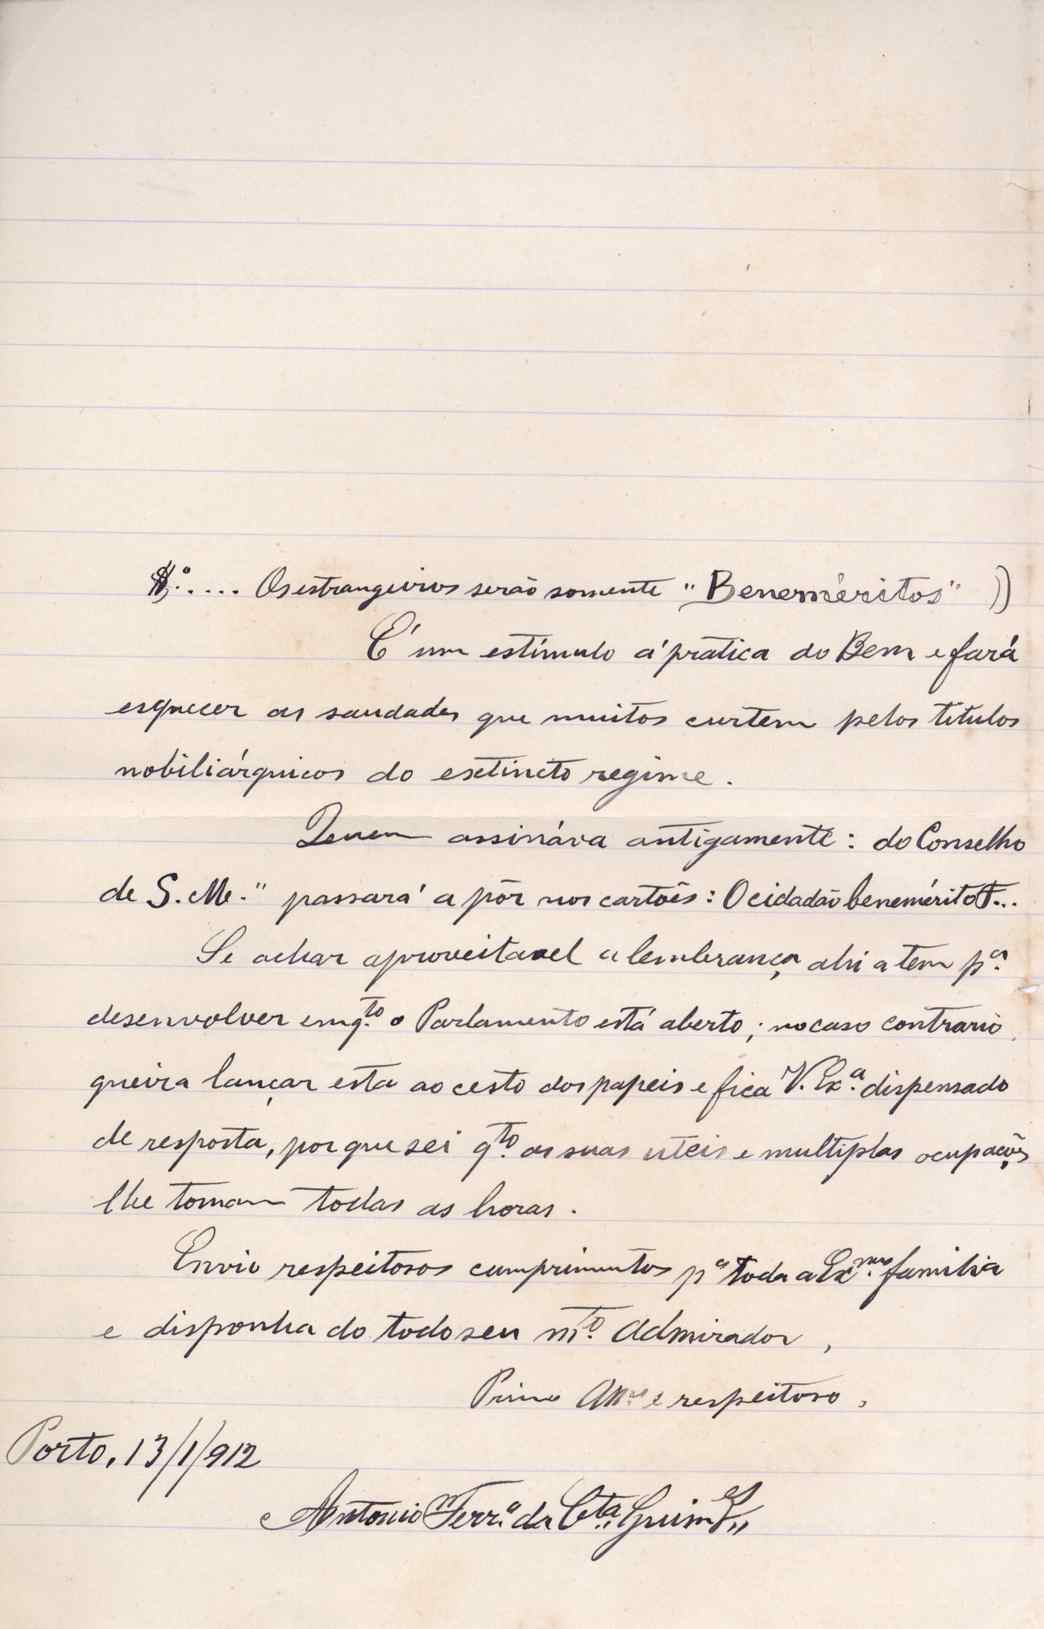 §.º.... Os estrangeiros serão somente "Beneméritos" ))
É um estimulo á pratica do Bem e fará
esquecer as saudades que muitos curtem pelos titulos
nobiliárquicos do extincto regime.
Quem assináva antigamente: do Conselho
de S. M." passará a pôr nos cartões: O cidadão benemérito F...
Se achar aproveitavel a lembrança, ahi a tem pª.
desenvolver emq.to o Parlamento está aberto; no caso contrario,
queira lançar esta ao cesto dos papeis e fica V. Exª. dispensado
de resposta, porque sei q.to as suas uteis e multiplas ocupações
lhe tomam todas as horas.
Envio respeitosos cumprimentos pª toda a Ex.ma familia
e disponha do todo seu m.to admirador,
Primo Am.º e respeitoso,
Porto, 13/1/912
Antonio Ferr.ª da C.ta Guim.es